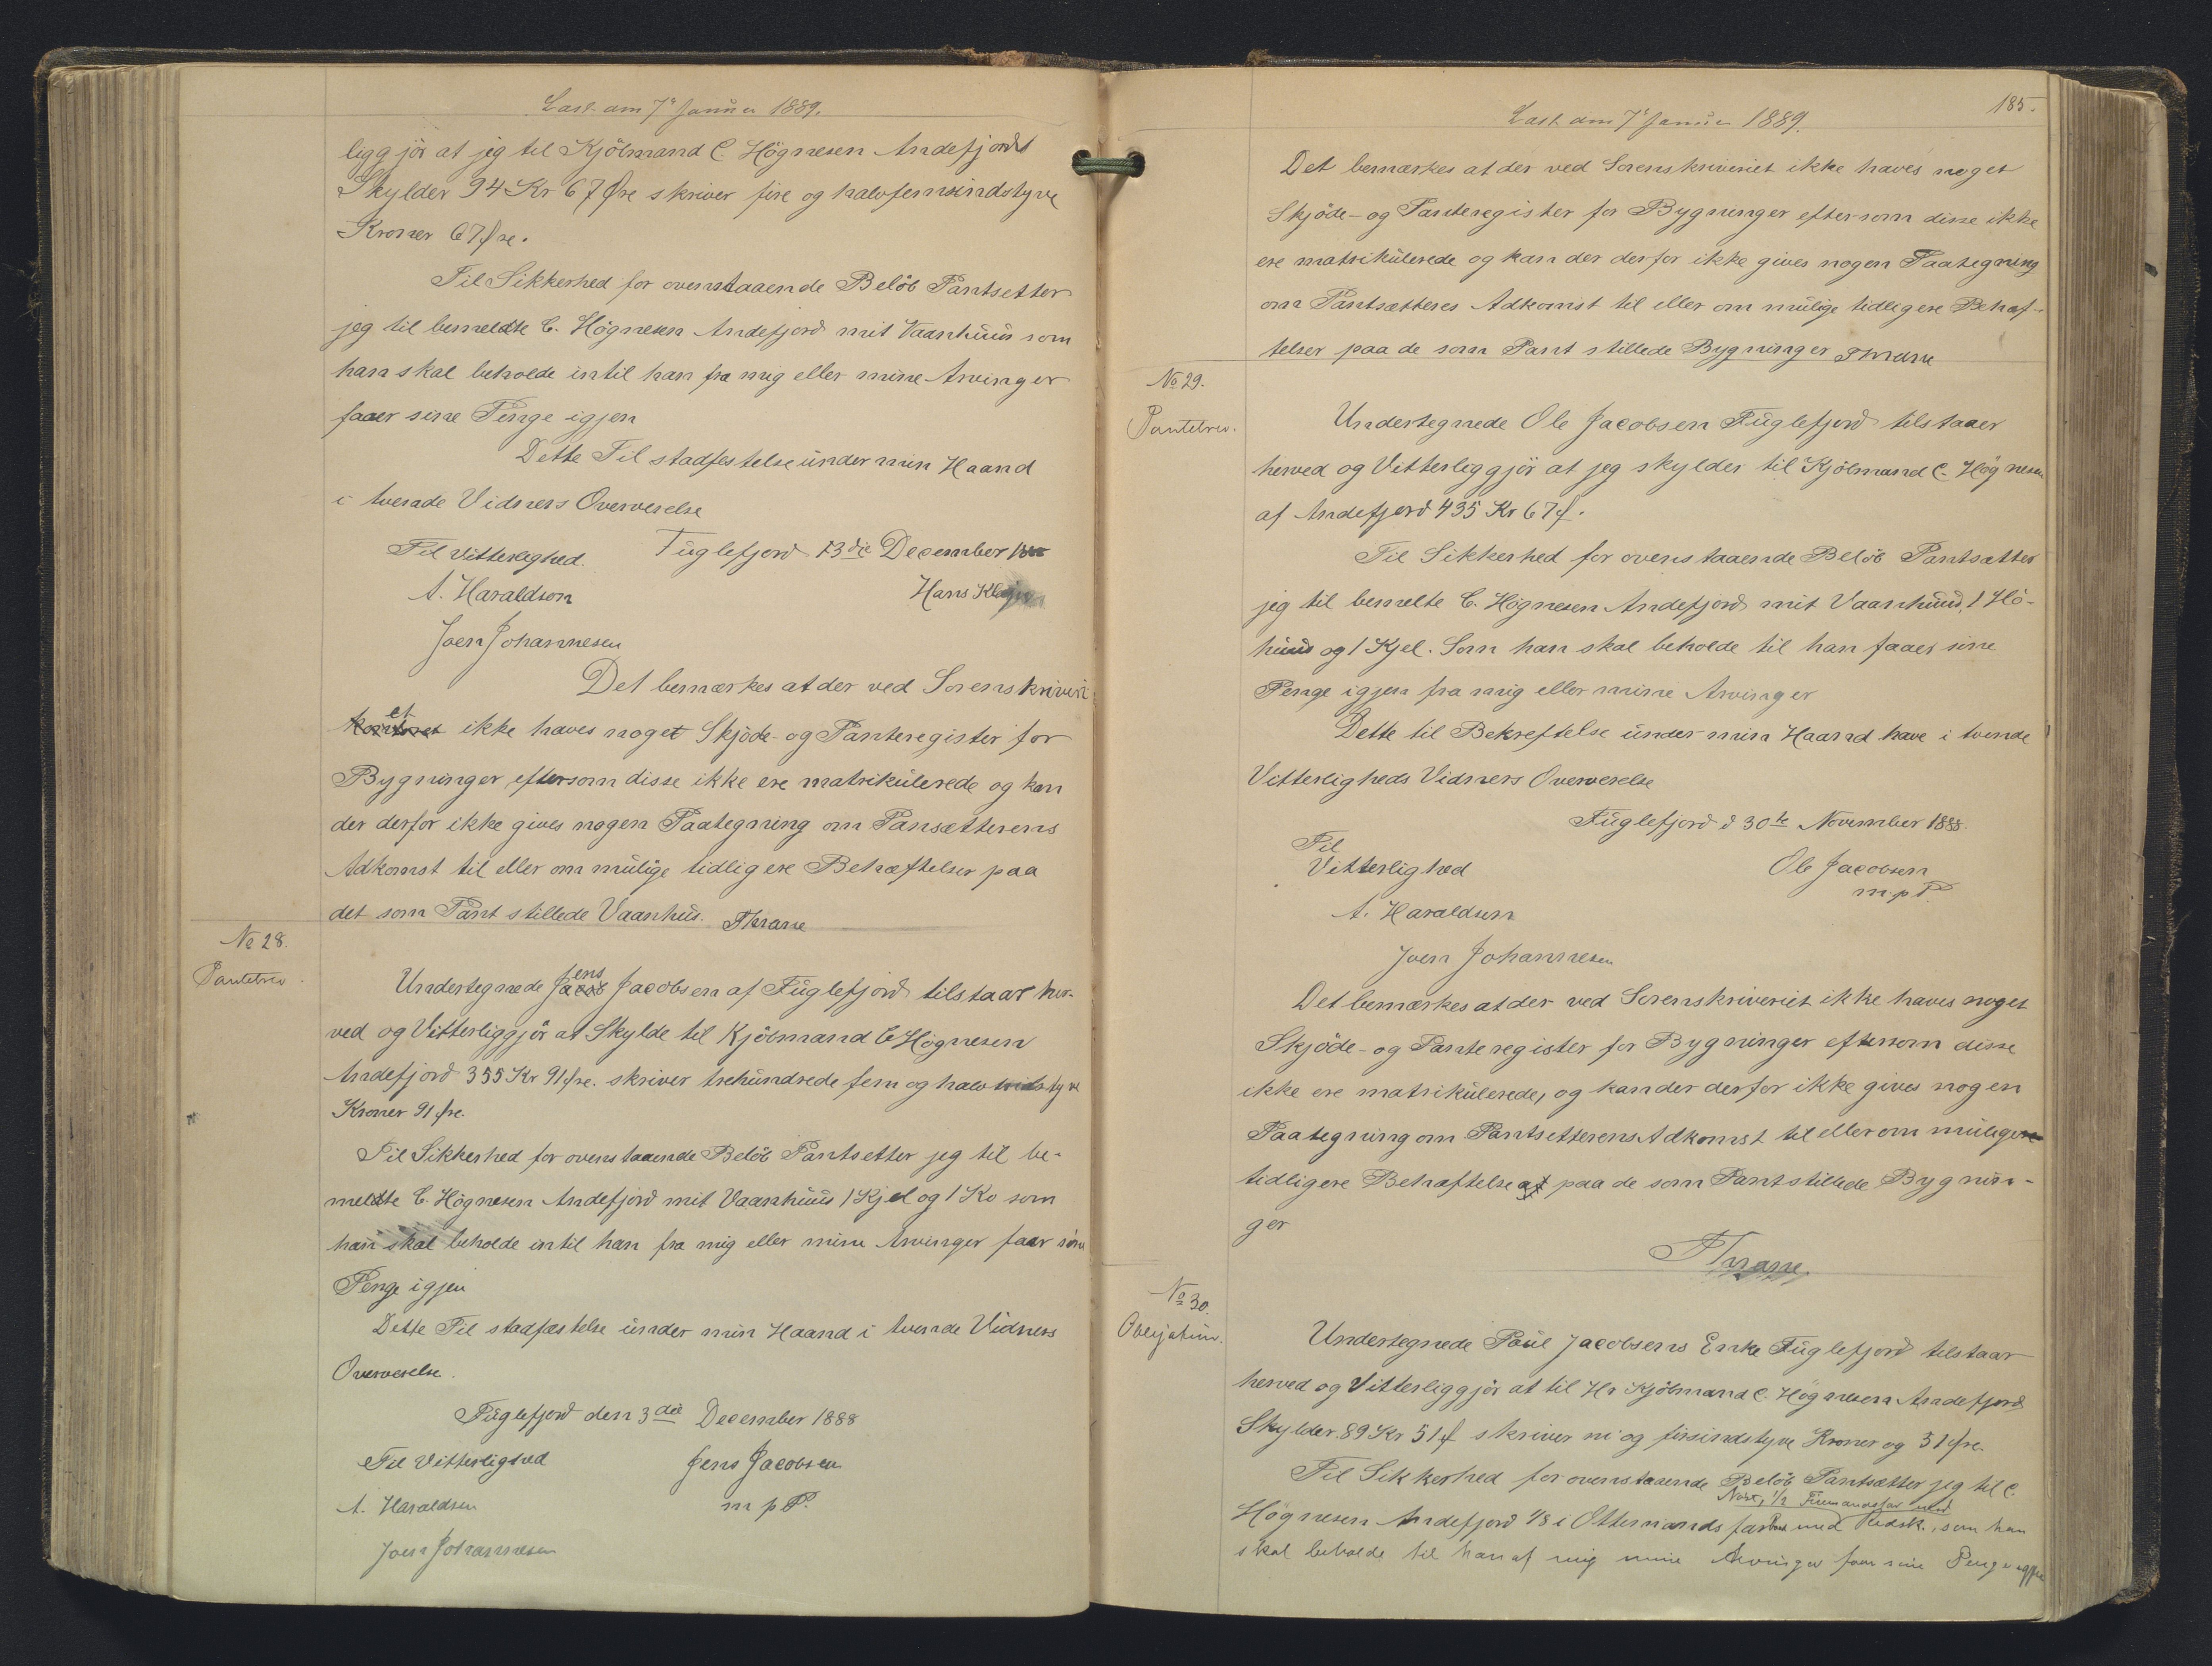 Læst den 7' Januar 1889.
ligg jör at jeg til Kjöbmand C. Högnesen Andefjord
Skylder 94 Kr 67 Øre skriver fire og halvfemsindstyve
Kroner 67 Øre.
Til Sikkerhed for ovenstaaende Belöb Pantsetter
jeg til bemeldte C. Högnesen Andefjord mit Vaanhuus som
han skal beholde intil han fra mig eller mine Arvinger
faaer sine Penge igjen
Dette Til stadfestelse under min Haand
i tvende Vidners Oververelse
Til Vitterlighed. Fuglefjord 13die December
A. Haraldsen Hans
Joen Johannesen
Det bemærkes at der ved Sorenskriveri
et
kontoret ikke haves noget Skjöde- og Panteregister for
Bygninger eftersom disse ikke ere matrikulerede og kan
der derfor ikke gives nogen Paategning om Pansetterens
Adkomst til eller om mulige tidligere Behæftelser paa
det som Pant stillede Vaanhus. Thrane
No 28.
Pantebrev.
ens
Undertegnede Jacob Jacobsen af Fuglefjord tilstaar her-
ved og Vitterliggjör at Skylde til Kjöbmand C Högnesen
Andefjord 355 Kr 91 Øre. skriver trehundrede fem og halvtridstyve
Kroner 91 Øre.
Til Sikkerhed for ovenstaaende Belöb Pantsetter jeg til be-
meldte C. Högnesen Andefjord mit Vaanhuus 1 Kjel og 1 Ko som
han skal beholde intil han fra mig eller mine Arvinger faar sine
Penge igjen
Dette Til stadfæstelse under min Haand i tvende Vidners
Oververelse.
Fuglefjord den 3die December 1888
Til Vitterlighed Jens Jacobsen
A. Haraldsen m p P.
Joen Johannesen
185.
Læst den 7' Januar 1889.
Det bemærkes at der ved Sorenskriveriet ikke haves noget
Skjöde- og Panteregister for Bygninger eftersom disse ikke
ere matrikulerede og kan der derfor ikke gives nogen Paategning
om Pantsætteres Adkomst til eller om mulige tidligere Behæf-
telser paa de som Pant stillede Bygninger Thrane
No 29.
Pantebrev.
Undertegnede Ole Jacobsen Fuglefjord tilstaaer
herved og Vitterliggjör at jeg skylder til Kjöbmand C. Högnesen
af Andefjord 435 Kr 67 Ø.
Til Sikkerhed for ovenstaaende Belöb Pantsætter
jeg til bemelte C. Högnesen Andefjord mit Vaanhuus, 1 Hö-
huus og 1 Kjel. Som han skal beholde til han faaer sine
Penge igjen fra mig eller mine Arvinger
Dette til Bekreftelse under min Haand have i tvende
Vitterligheds Vidners Oververelse
Fuglefjord d 30te November 1888.
Til
Vitterlighed Ole Jacobsen
m. p P.
A. Haraldsen
Joen Johannesen
Det bemærkes at der ved Sorenskriveriet ikke haves noget
Skjöde- og Panteregister for Bygninger eftersom disse
ikke ere matrikulerede, og kan der derfor ikke gives nogen
Paategning om Pantsetterens Adkomst til eller om mulige
tidligere Behæftelse paa de som Pant stillede Bygnin-
ger
Thrane
No 30.
Obligation.
Undertegnede Poul Jacobsens Enke Fuglefjord tilstaar
herved og Vitterliggjör at til Hr Kjöbmand C. Högnesen Andefjord
Skylder 89 Kr 51 Ø skriver ni og firsindstyve Kroner og 51 Øre.
Til Sikkerhed for ovenstaaende Belöb Pantsætter jeg til C.
Nöst, 1/2 Firmandsfar med
Högnesen Andefjord 1/8 i Ottemandsfar med Redsk., som han
skal beholde til han af mig mine Arvinger faar sine Penge igjen